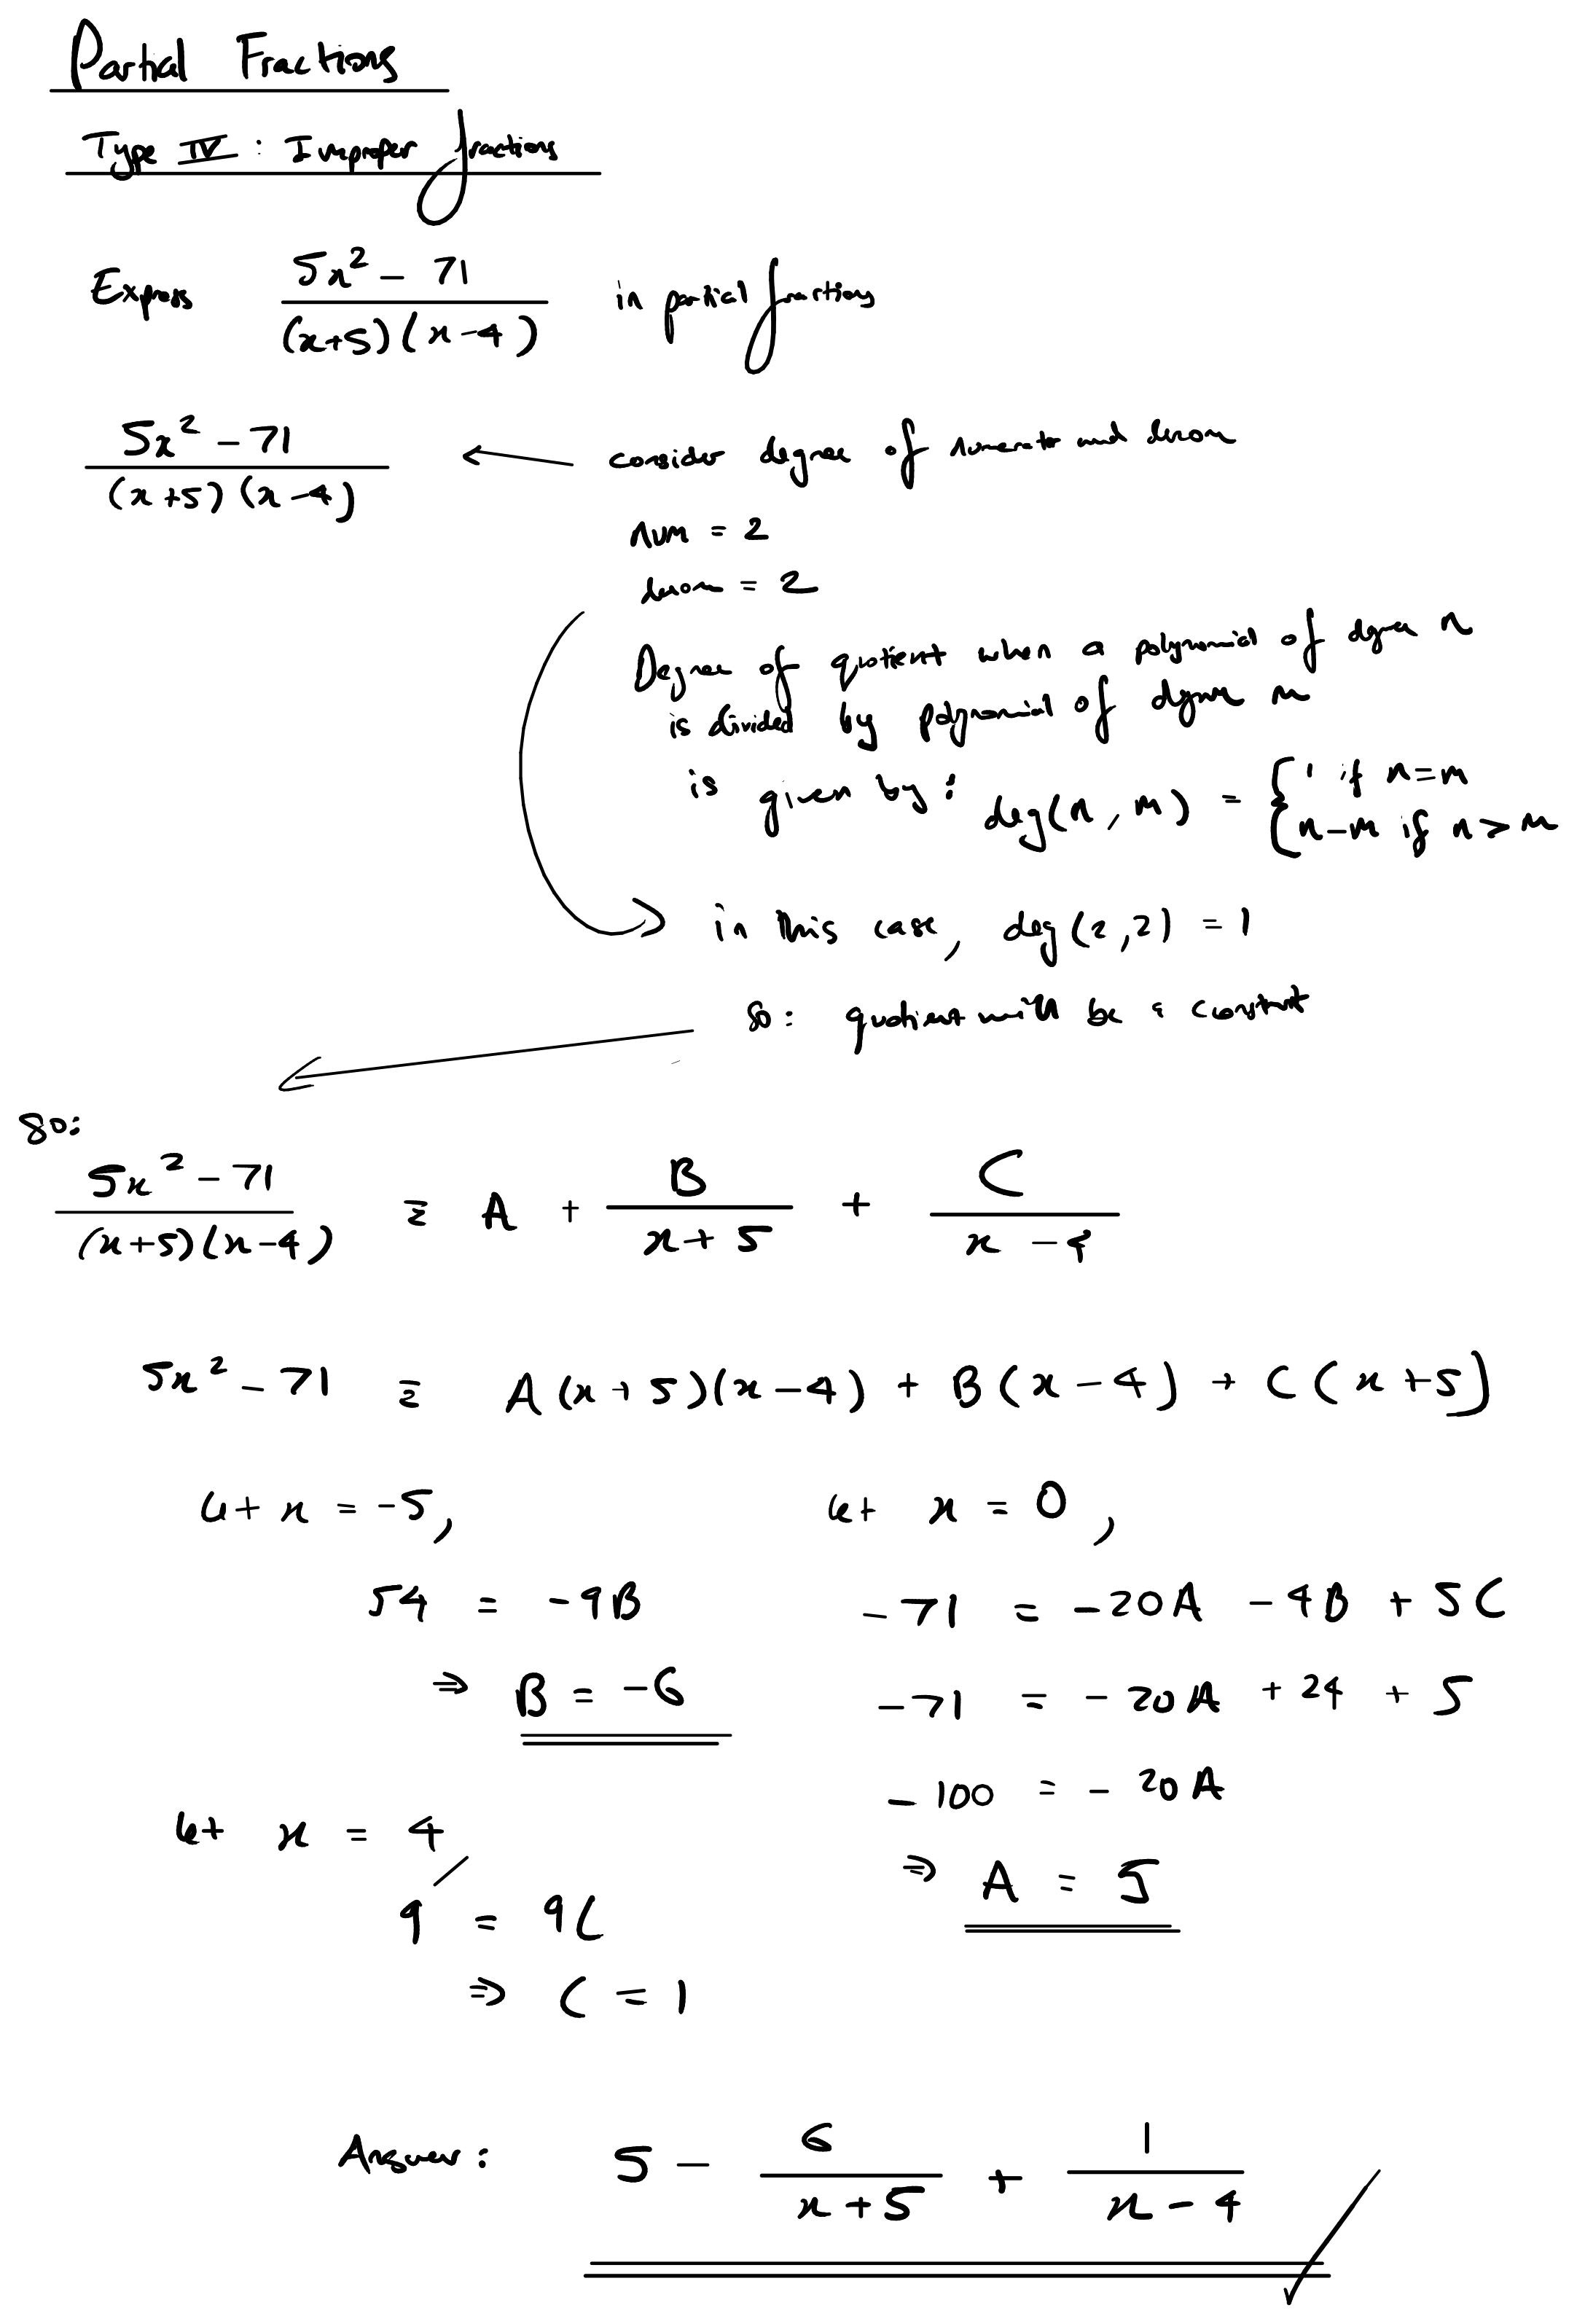 Partial Fractions
Type IV : Improper fractions
Express (5x² - 71)/((x+5)(x-4)) in partial fractions
(5x² - 71)/((x+5)(x-4)) ← consider degree of numerator and denom
num = 2
denom = 2
Degree of quotient when a polynomial of degree n
is divided by polynomial of degree m
is given by: deg(n, m) = { 1 if n=m
{ n-m if n > m
in this case, deg(2,2) = 1
so: quotient will be a constant
So:
(5x² - 71)/((x+5)(x-4)) ≡ A + B/(x+5) + C/(x-4)
5x² - 71 ≡ A(x+5)(x-4) + B(x-4) + C(x+5)
let x = -5,
54 = -9B
⇒ B = -6
let x = 4,
9 = 9C
⇒ C = 1
let x = 0,
-71 = -20A - 4B + 5C
-71 = -20A + 24 + 5
-100 = -20A
⇒ A = 5
Answer: 5 - 6/(x+5) + 1/(x-4) ✓